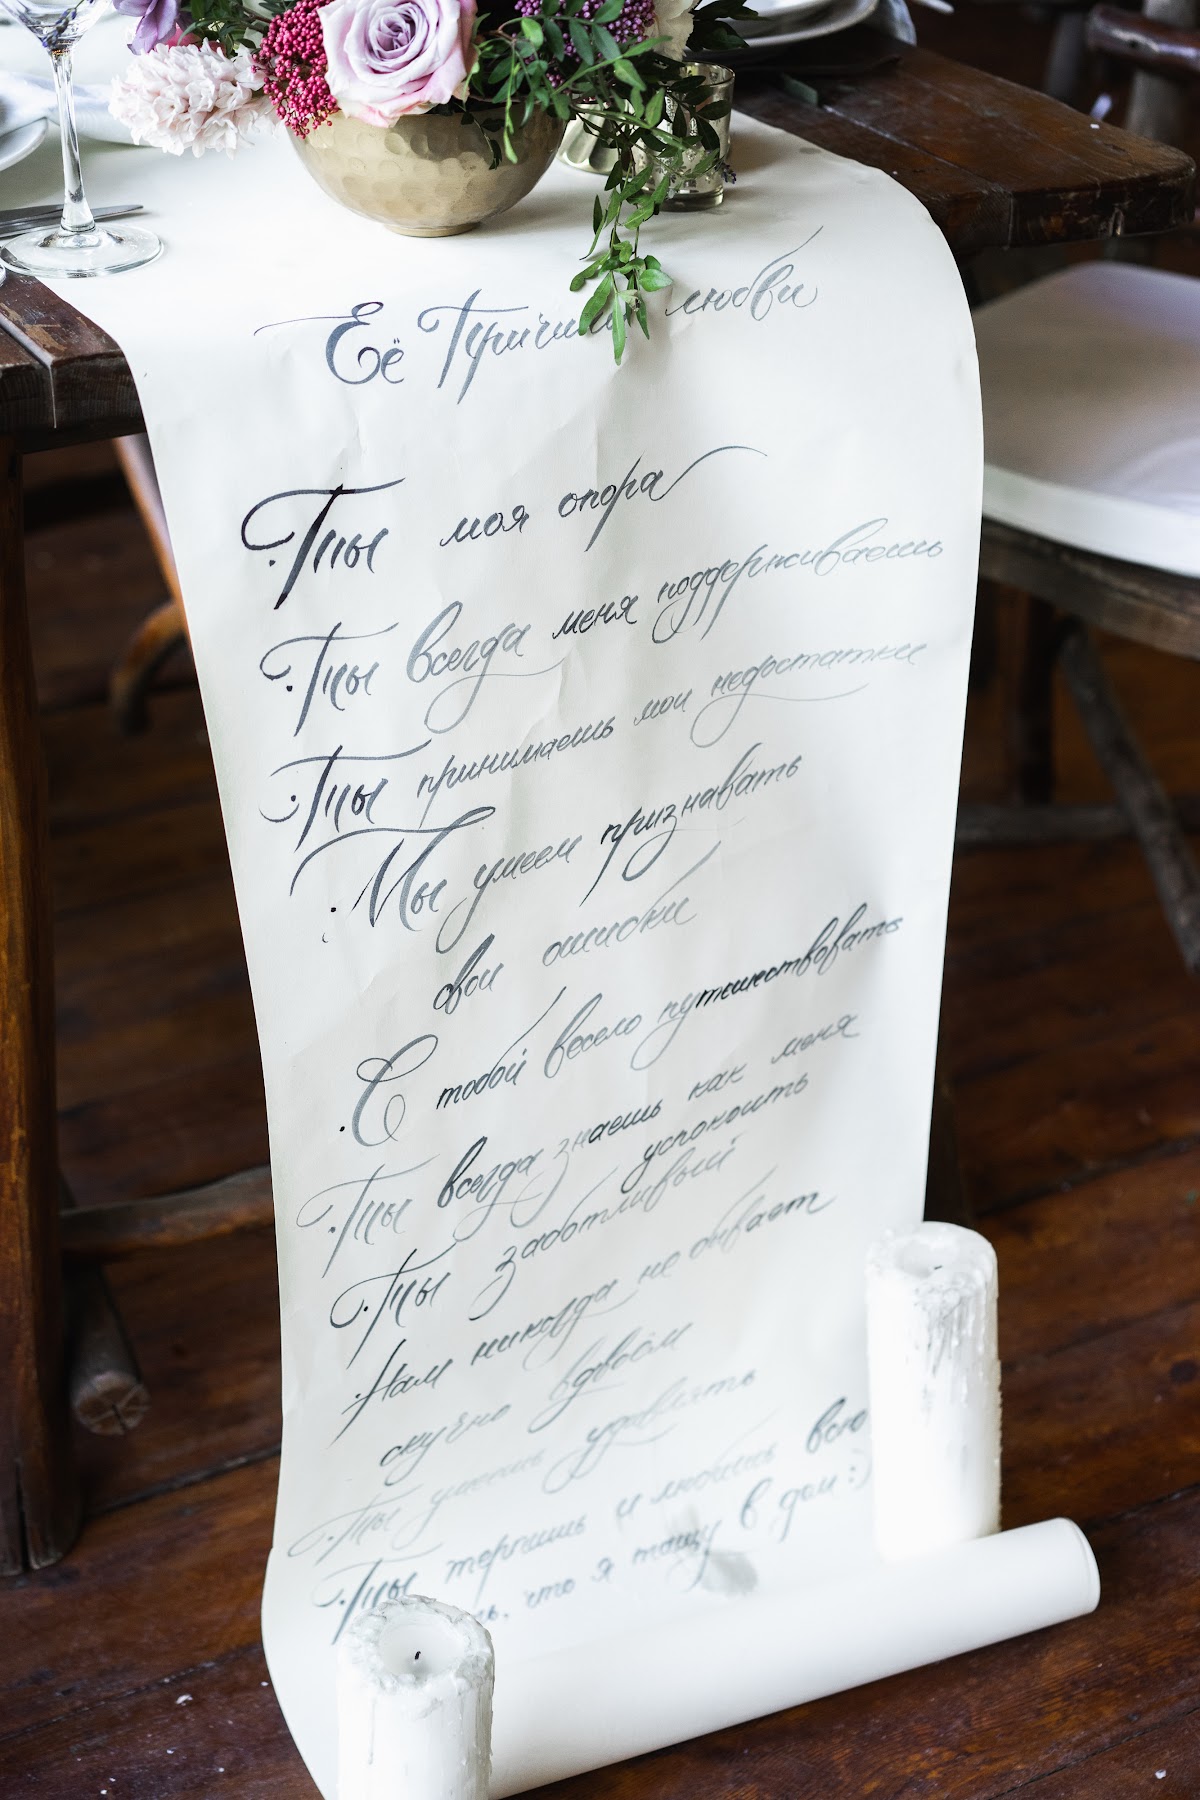 Её Причины любви
Ты моя опора
Ты всегда меня поддерживаешь
Ты принимаешь мои недостатки
Мы умеем признавать
свои ошибки
С тобой весело путешествовать
Ты всегда знаешь как меня
успокоить
Ты заботливый
Нам никогда не бывает
скучно вдвоём
Ты умеешь удивлять
Ты терпишь и любишь всю
что я тащу в дом :)